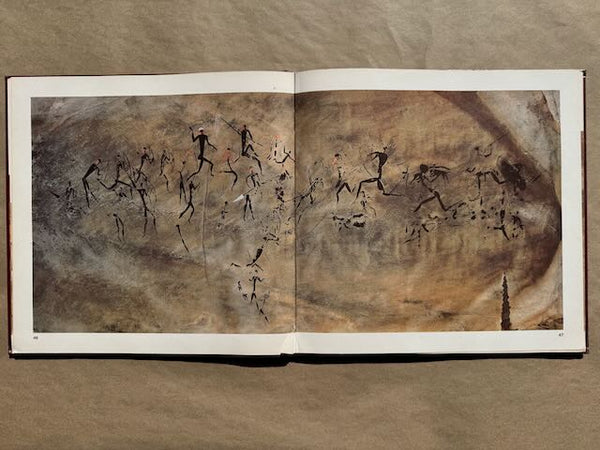 46
47